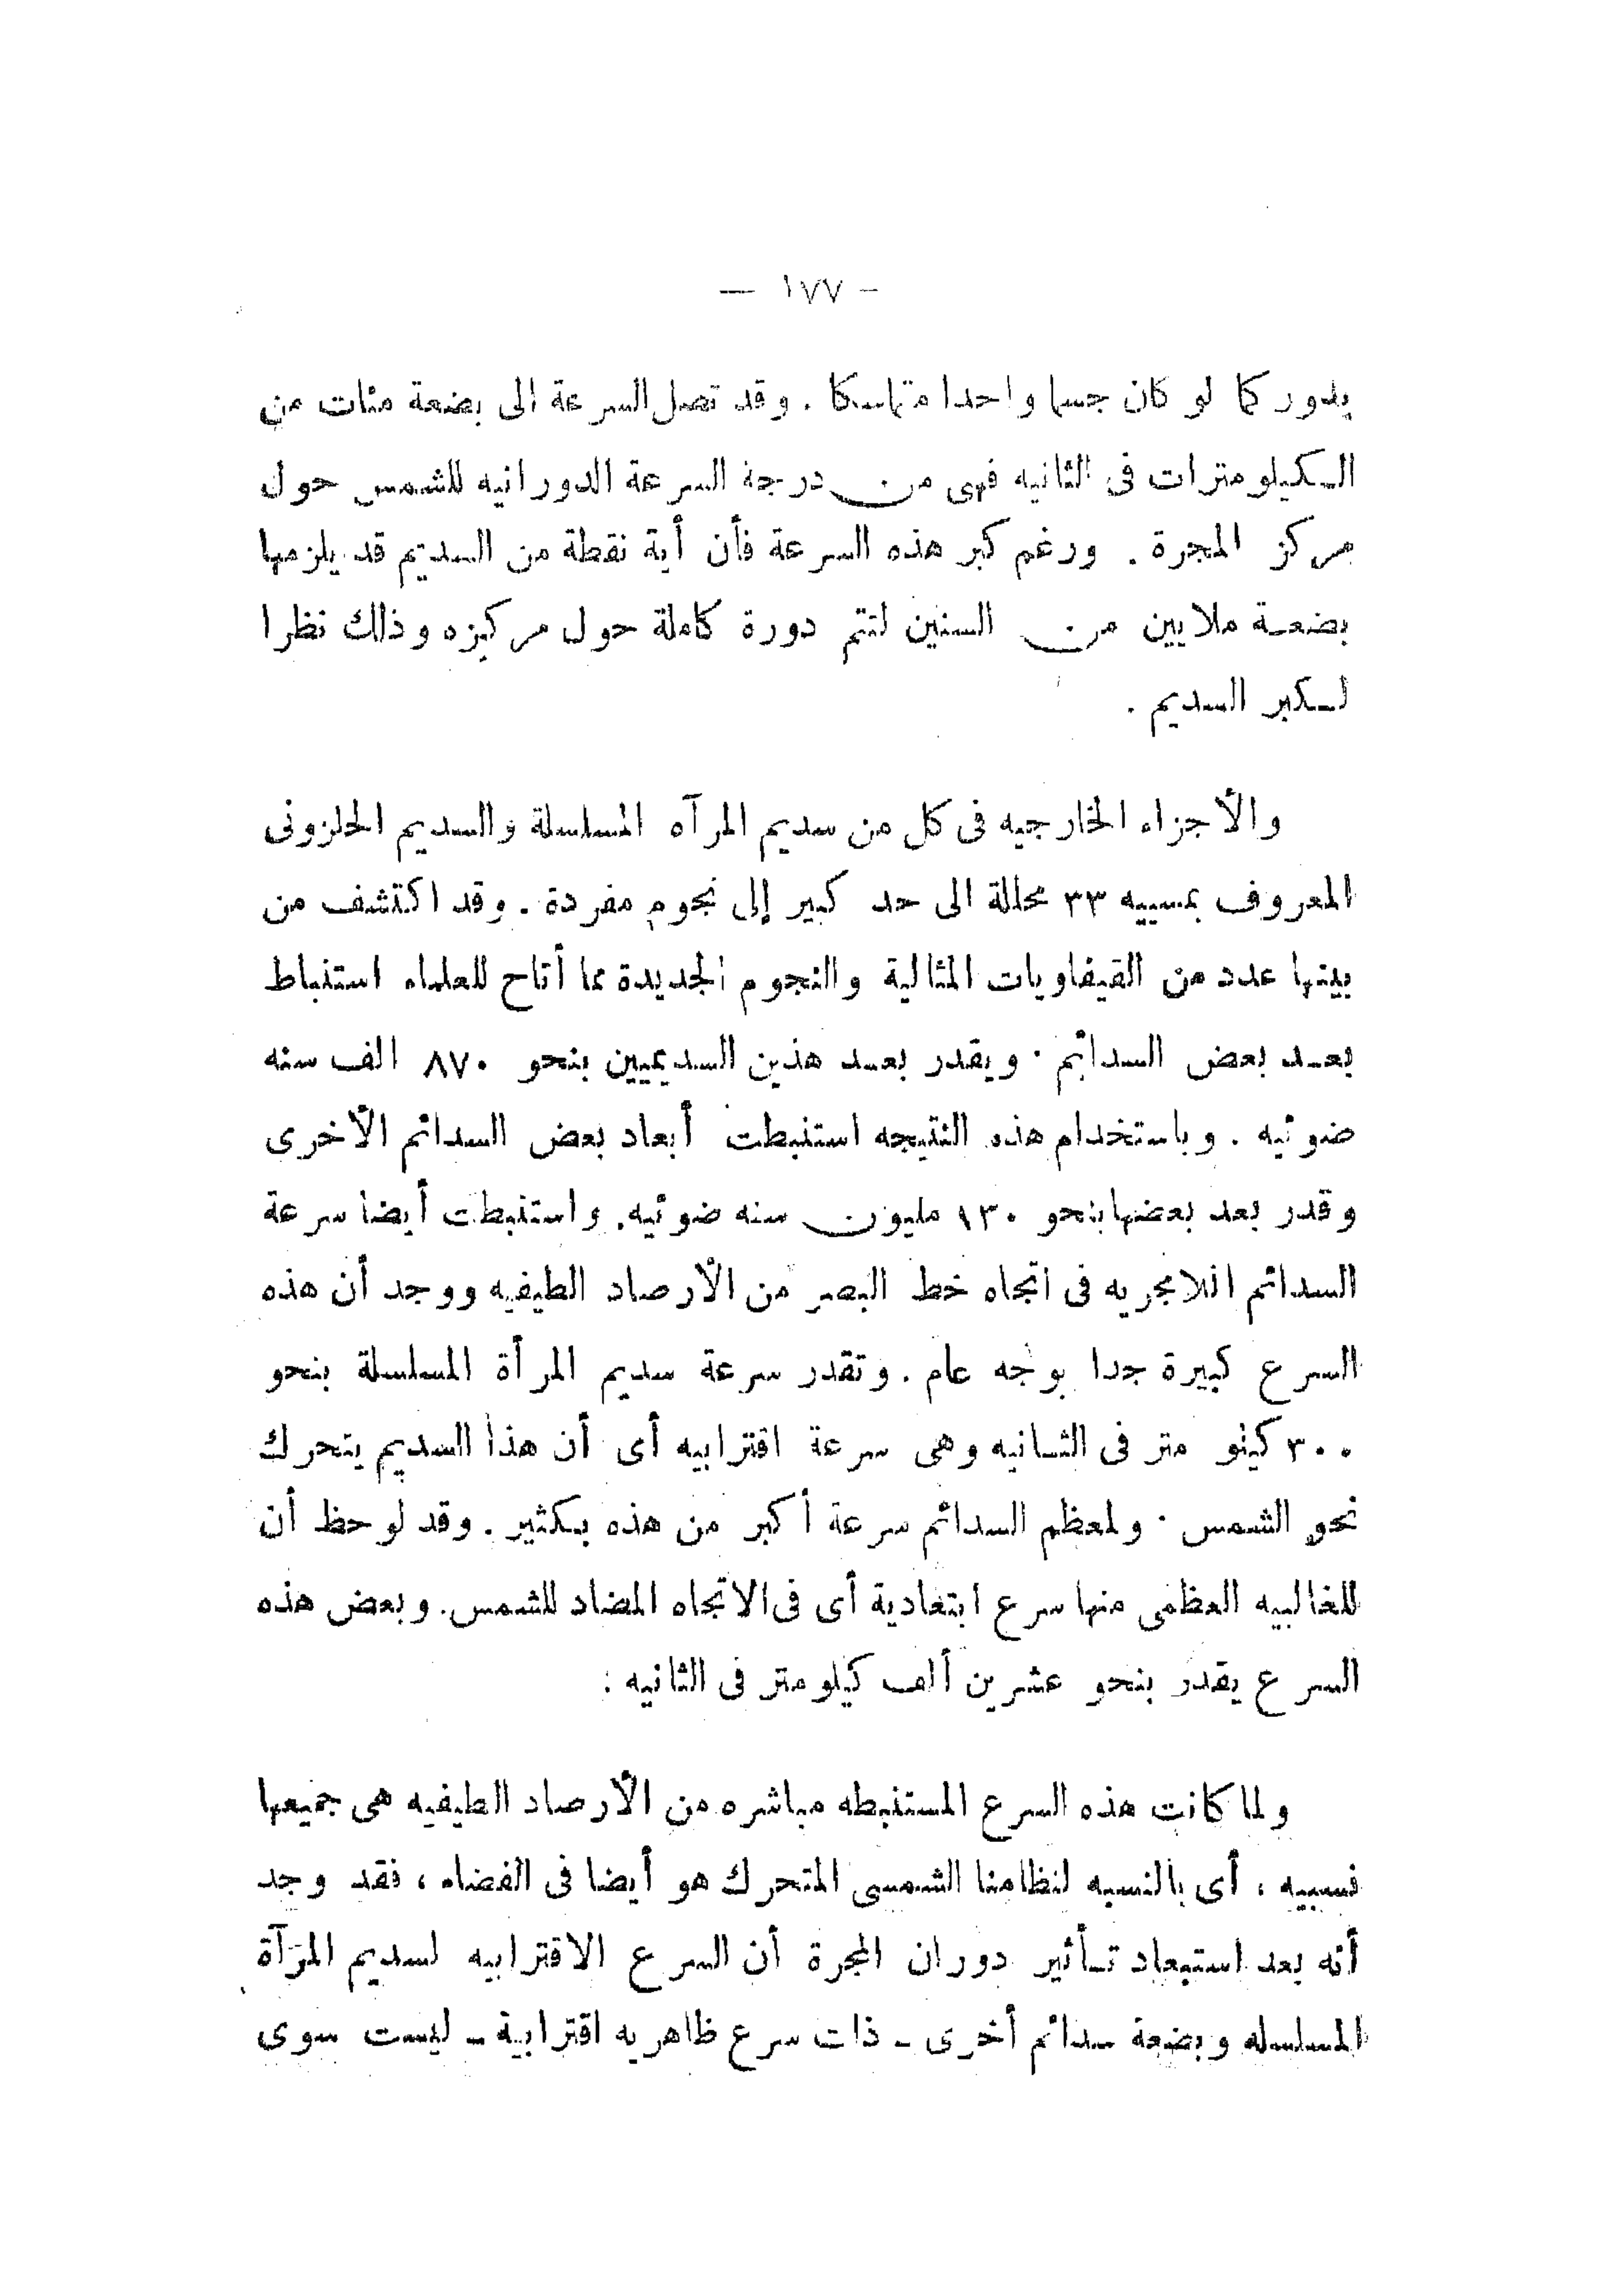 — ١٧٧ —
يدور كما لو كان جسما واحدا متماسكا . وقد تصل السرعة الى بضعة مئات من
الكيلو مترات فى الثانيه فهى من درجة السرعة الدورانيه للشمس حول
مركز المجرة . ورغم كبر هذه السرعة فأن أية نقطة من السديم قد يلزمها
بضعة ملايين من السنين لتتم دورة كاملة حول مركزه وذلك نظرا
لكبر السديم .
والأجزاء الخارجيه فى كل من سديم المرآه المسلسلة والسديم الحلزونى
المعروف بمسييه ٣٣ محللة الى حد كبير إلى نجوم مفردة . وقد اكتشف من
بينها عدد من القيفاويات المثالية والنجوم الجديدة مما أتاح للعلماء استنباط
بعد بعض السدائم . ويقدر بعد هذين السديميين بنحو ٨٧٠ الف سنه
ضوئيه . وباستخدام هذه النتيجه استنبطت أبعاد بعض السدائم الأخرى
وقدر بعد بعضها بنحو ١٣٠ مليون سنه ضوئيه . واستنبطت أيضا سرعة
السدائم اللامجريه فى اتجاه خط البصر من الأرصاد الطيفيه ووجد أن هذه
السرع كبيرة جدا بوجه عام . وتقدر سرعة سديم المرأة المسلسلة بنحو
٣٠٠ كيلو متر فى الثانيه وهى سرعة اقترابيه أى أن هذا السديم يتحرك
نحو الشمس . ولمعظم السدائم سرعة أكبر من هذه بكثير . وقد لوحظ أن
للغالبيه العظمى منها سرع ابتعادية أى فى الاتجاه المضاد للشمس . وبعض هذه
السرع يقدر بنحو عشرين ألف كيلو متر فى الثانيه :
ولما كانت هذه السرع المستنبطه مباشره من الأرصاد الطيفيه هى جميعها
نسبيه ، أى بالنسبه لنظامنا الشمسى المتحرك هو أيضا فى الفضاء ، فقد وجد
أنه بعد استبعاد تأثير دوران المجرة أن السرع الاقترابيه لسديم المرآة
المسلسله وبضعة سدائم أخرى ـ ذات سرع ظاهريه اقترابية ـ ليست سوى